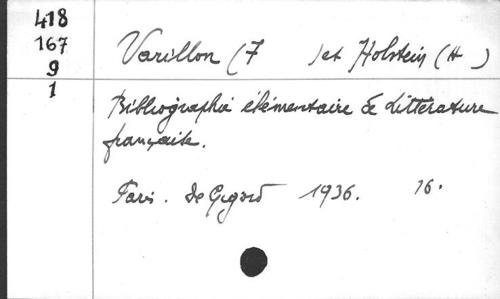 418
167
9
1
Varillon (F )et Holstein (H )
Bibliographie élémentaire de Littérature
française.
Paris. de Gigord 1936. 16.